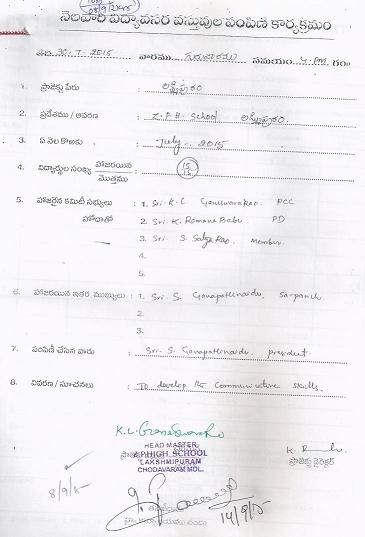 08/9/2015
నెలవారీ విద్యావసర వస్తువుల పంపిణీ కార్యక్రమం
తేది 30-7-2015 వారము గురువారము సమయం 4 PM గం
1. ప్రాజెక్టు పేరు : లక్ష్మీపురం
2. ప్రదేశము / ఆవరణ : Z.P.H. School లక్ష్మీపురం
3. ఏ నెల కొఱకు : July - 2015
4. విద్యార్థుల సంఖ్య హాజరయిన 15
మొత్తము 15
5. హాజరైన కమిటీ సభ్యులు : 1. Sri. K.L Ganeswarao PCC
హోదాతో 2. Sri. K. Ramana Babu PD
3. Sri. S. Satya Rao. Member.
4.
5.
6. హాజరయిన ఇతర ముఖ్యులు : 1. Sri. S. Ganapathinaidu, Sarpanch.
2.
3.
7. పంపిణీ చేసిన వారు : Sri. S. Ganapathinaidu, president.
8. వివరణ / సూచనలు : To develop the Communicative Skills.
K. L. Ganeswararao
HEAD MASTER
Z.P.HIGH SCHOOL
LAKSHMIPURAM
CHODAVARAM MDL.
ప్రాజెక్టు డైరెక్టర్
8/9/15
14/9/15